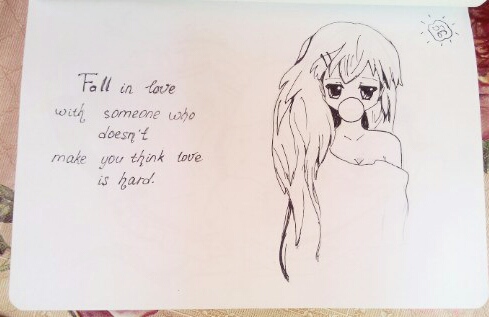 Fall in love
with someone who
doesn't
make you think love
is hard.